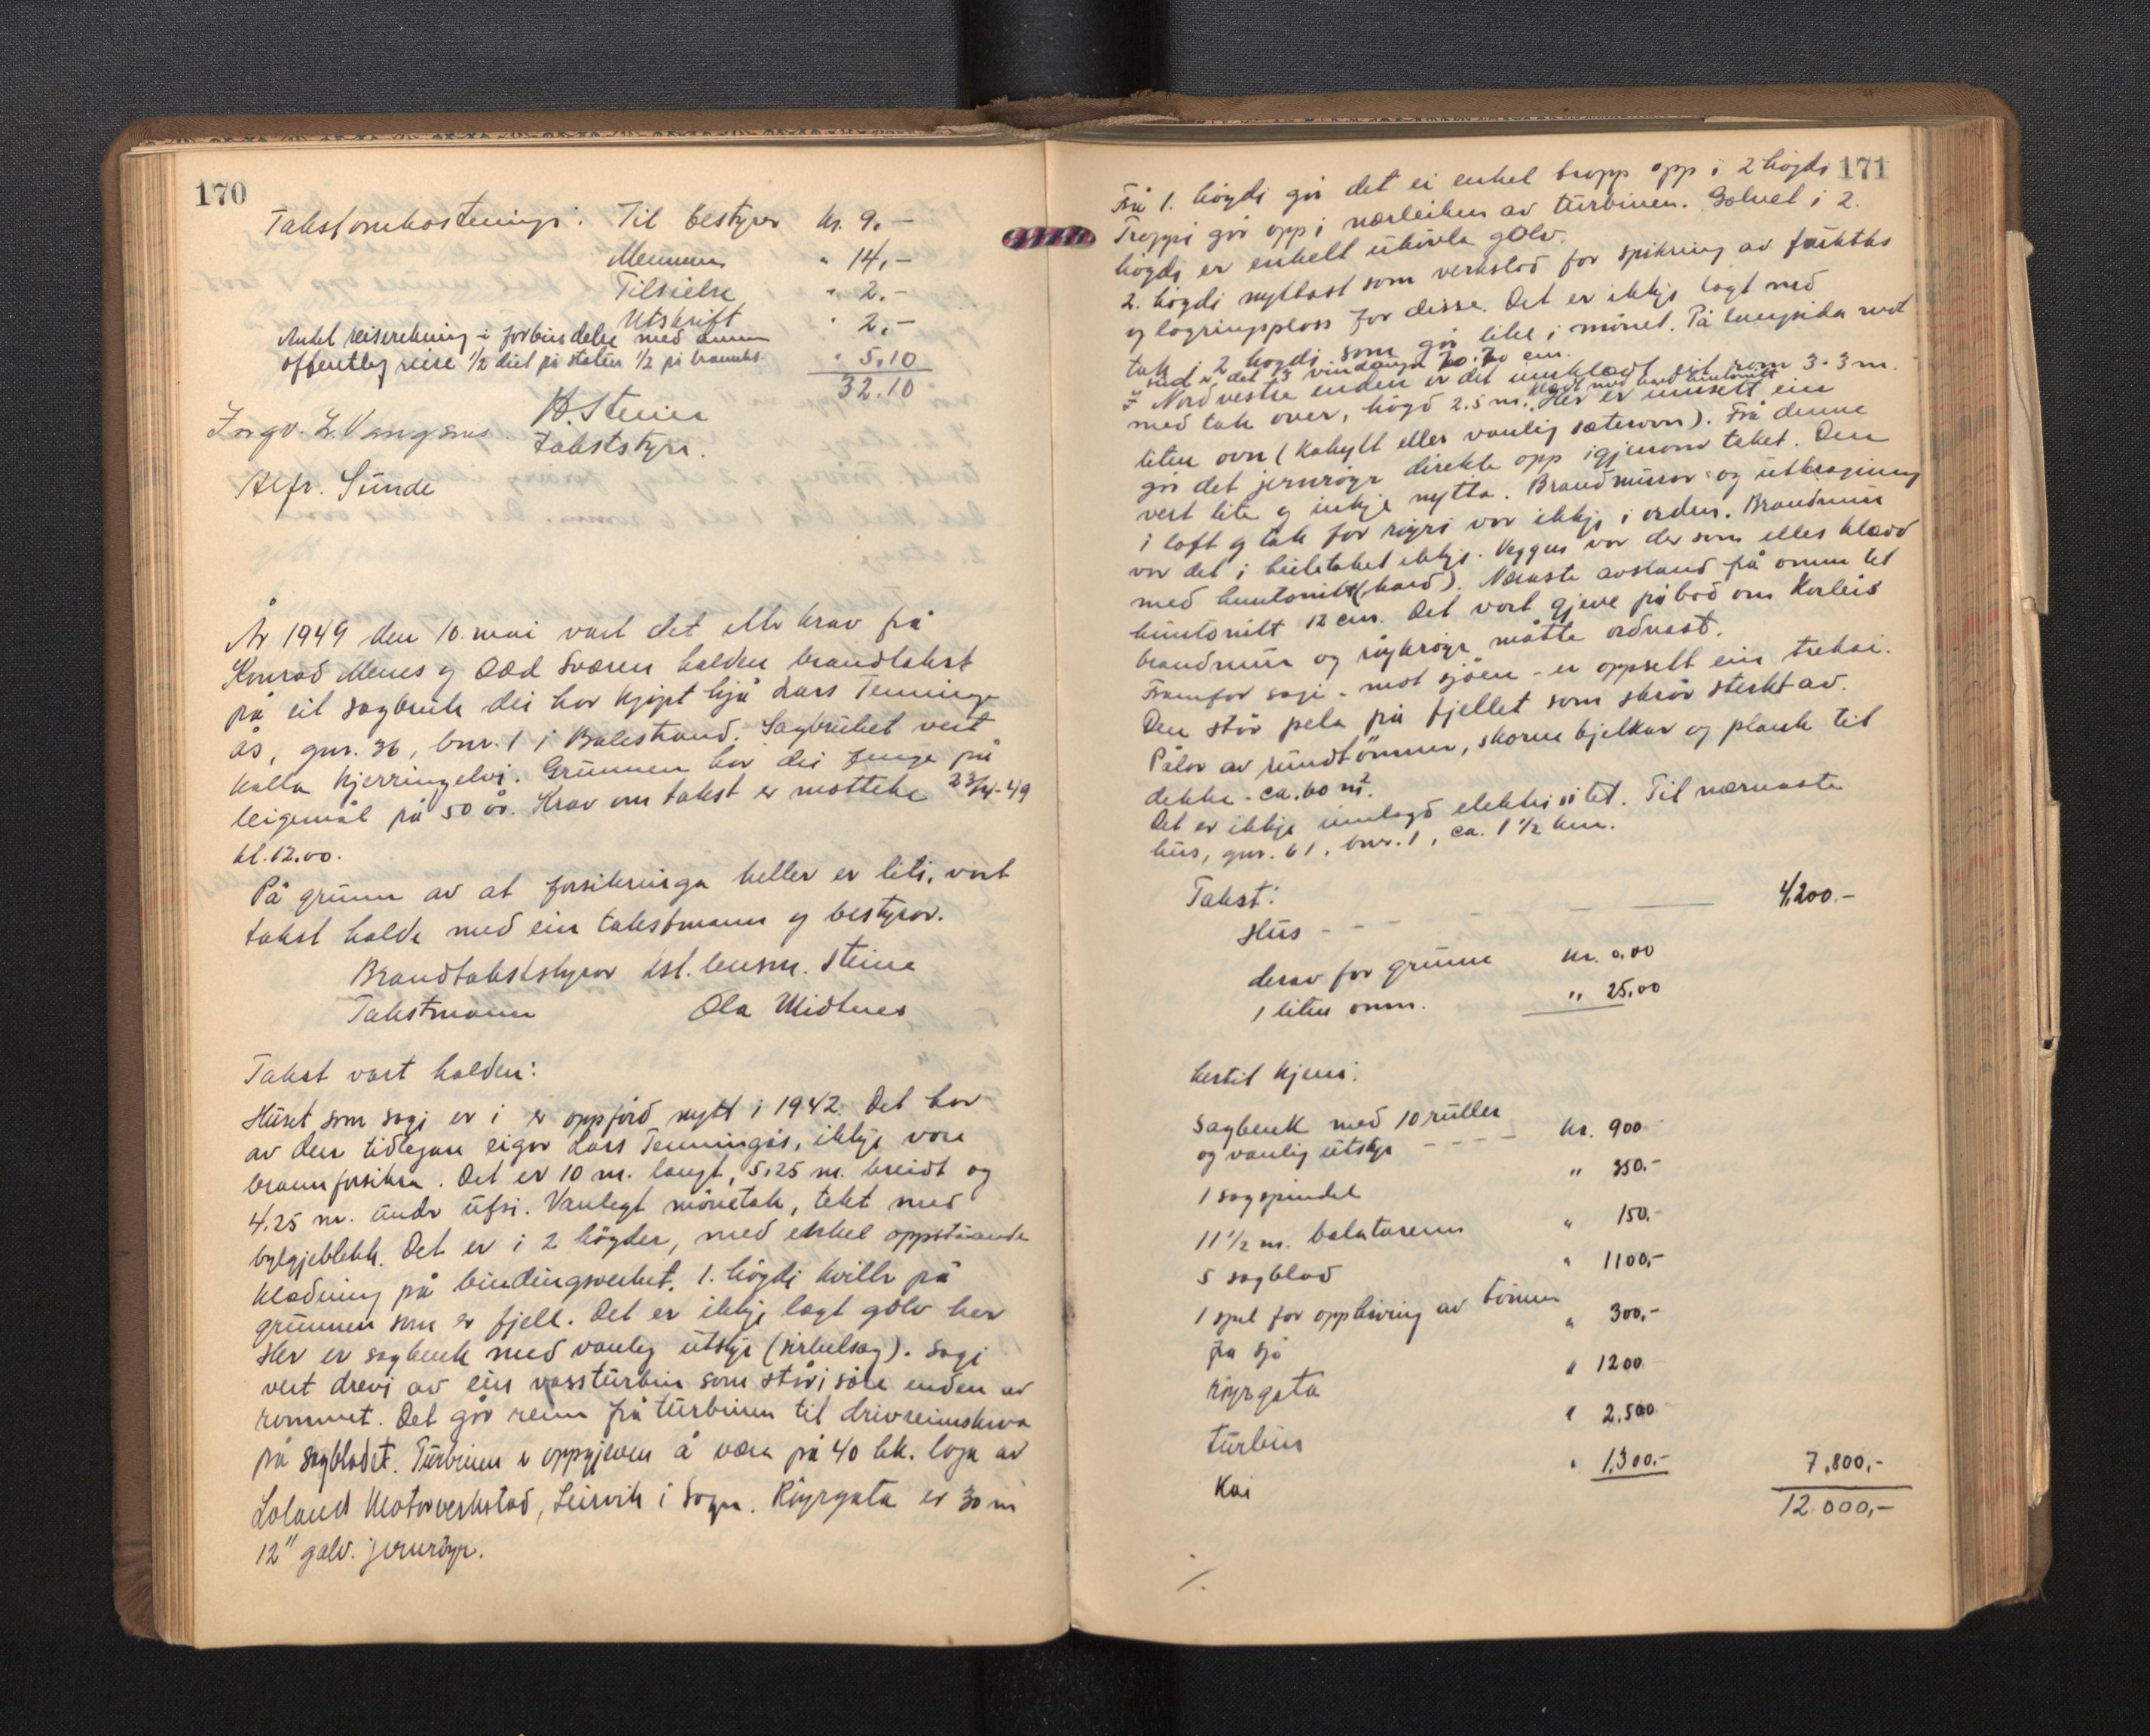 170
Takstomkostningi: Til bestyrer kr. 9.-
Mennene " 14,-
Tilsielse " 2.-
Utskrift " 2,-
Antel reiserekning i forbindelse med annen
offentleg reise 1/2 del på staten 1/2 på brannks. " 5,10
32.10
H. Steine
takststyrar.
Ingv. L. Vangsnes.
Alfr. Sunde
År 1949 den 10. mai vart det etter krav frå
Konrad Menes og Odd Sværen halden brandtakst
på eit sagbruk dei har kjøpt hjå Lars Tenninge
ås, gnr. 36, bnr. 1 i Balestrand. Sagbruket vert
kalla Kjerringelvi. Grunnen har dei fenge på
leigemål på 50 år. Krav om takst er motteke 23/4-49
kl. 12.00.
På grunn av at forsikringa heller er liti, vart
takst halde med ein takstmann og bestyrar.
Brandtakststyrar kst. lensm. Steine
Takstmann Ola Midtnes
Takst vart halden:
Huset som sagi er i er oppførd nytt i 1942. Det har
av den tidlegare eigar Lars Tenningås, ikkje vore
brannforsikra. Det er 10 m. langt, 5,25 m. breidt og
4,25 m. under ufsi. Vanlegt mönetak, tekt med
bylgjeblekk. Det er i 2 högder, med enkel oppståande
klædning på bindingsverket. 1. högdi kviler på
grunnen som er fjell. Det er ikkje lagt golv her
Her er sagbenk med vanleg utstyr (sirkelsag). Sagi
vert drevi av ein vassturbin som står i söre enden av
rommet. Det går reim frå turbinen til drivreimskiva
på sagbladet. Turbinen er oppgjeven å vera på 40 hk. laga av
Loland Motorverkstad, Leirvik i Sogn. Röyrgata er 30 m
12" galv. jernröyr.
171
Frå 1. högdi går det ei enkel tropp opp i 2 högdi
Troppi går opp i nærleiken av turbinen. Golvet i 2.
högdi er enkelt uhövla golv.
2. högdi nyttast som verkstad for spikring av
og lagringsplass for disse. Det er ikkje lagt ned
tak i 2 högdi som går like i mönet. På langsida mot
sud er det 3 vindauga 70.70 cm.
I Nordvestre enden er det innklædt eit rom 3.3 m.
med tak over, högd 2.5 m. klædt med hard huntonitt Her er innsett ein
liten ovn (Kahytt eller vanlig sæterovn). Frå denne
går det jernröyr direkte opp igjenom taket. Den
vert lite og inkje nytta. Brandmurar og utkraging
i loft og tak for röyri var ikkje i orden. Brandmur
var det i heiletaket ikkje. Veggen var der som elles klædd
med huntonitt (hard). Næraste avstand frå omnen til
huntonitt 12 cm. Det vart gjeve påbod om korleis
brandmur og röykröyr måtte ordnast.
Framfor sagi - mot sjöen - er oppsett ein trekai.
Den står pela på fjellet som skrår sterkt av.
Pålar av rundtömmer, skorne bjelkar og plank til
dekke - ca. 60 m².
Det er ikkje innlagd elektrisitet. Til nærmaste
hus, gnr. 61, bnr. 1, ca. 1 1/2 km.
Takst:
Hus - - - 4,200.-
derav for grunn kr. 0,00
1 liten omn. " 25,00
hertil kjem:
Sagbenk med 10 ruller
og vanlig utstyr - - - - kr. 900
1 sagspindel " 350.-
11 1/2 m. balatareim " 150.-
5 sagblad " 1100,-
1 spel for oppheiving av tömmer
fra sjö " 300,-
röyrgata " 1200
turbin " 2,500
Kai " 1,300.- 7,800,-
12.000,-
/.